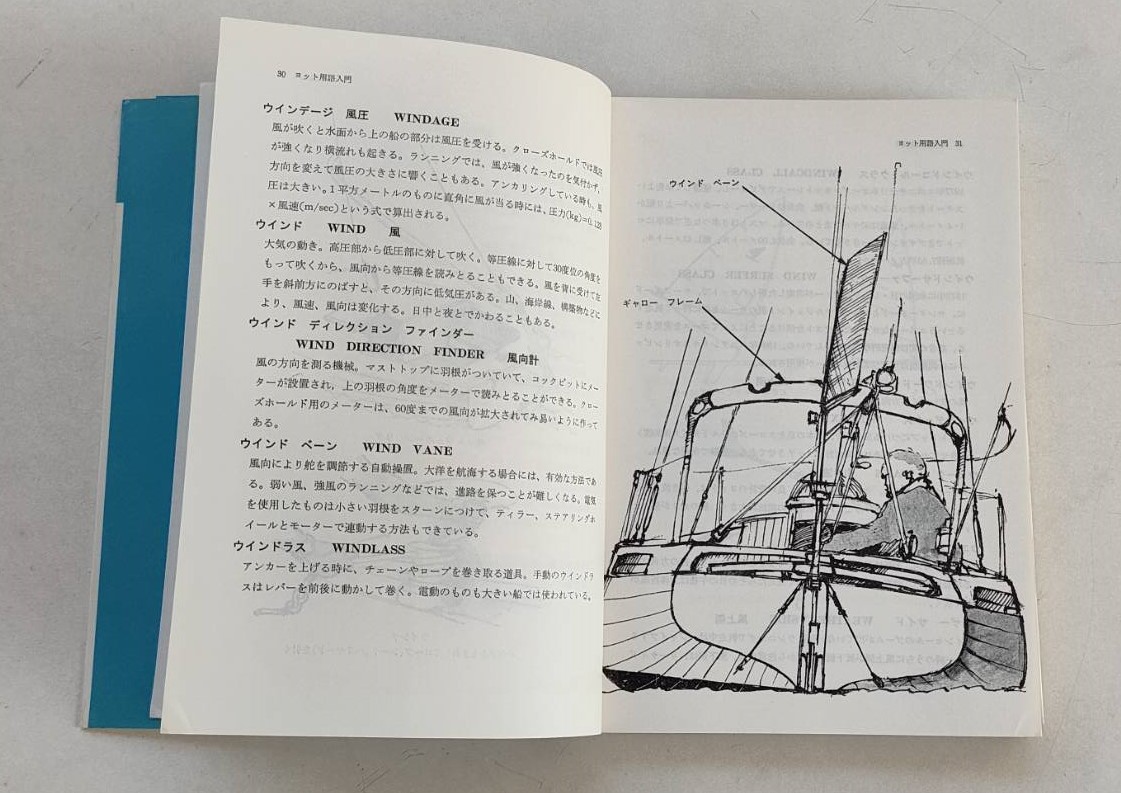 30 ヨット用語入門
ウインデージ 風圧 WINDAGE
風が吹くと水面から上の船の部分は風圧を受ける。クローズホールドでは風圧
が強くなり横流れも起きる。ランニングでは、風が強くなったのを気付かず、
方向を変えて風圧の大きさに響くこともある。アンカリングしている時も、風
圧は大きい。1平方メートルのものに直角に風が当る時には、圧力(kg)=0.125
×風速(m/sec)という式で算出される。
ウインド WIND 風
大気の動き。高圧部から低圧部に対して吹く。等圧線に対して30度位の角度を
もって吹くから、風向から等圧線を読みとることもできる。風を背に受けて左
手を斜前方にのばすと、その方向に低気圧がある。山、海岸線、構築物などに
より、風速、風向は変化する。日中と夜とでかわることもある。
ウインド ディレクション ファインダー
WIND DIRECTION FINDER 風向計
風の方向を測る機械。マストトップに羽根がついていて、コックピットにメー
ターが設置され、上の羽根の角度をメーターで読みとることができる。クロー
ズホールド用のメーターは、60度までの風向が拡大されてみ易いように作って
ある。
ウインド ベーン WIND VANE
風向により舵を調節する自動操置。大洋を航海する場合には、有効な方法であ
る。弱い風、強風のランニングなどでは、進路を保つことが難しくなる。電気
を使用したものは小さい羽根をスターンにつけて、ティラー、ステアリングホ
イールとモーターで連動する方法もできている。
ウインドラス WINDLASS
アンカーを上げる時に、チェーンやロープを巻き取る道具。手動のウインドラ
スはレバーを前後に動かして巻く。電動のものも大きい船では使われている。
ヨット用語入門 31
ウインド ベーン
ギャロー フレーム